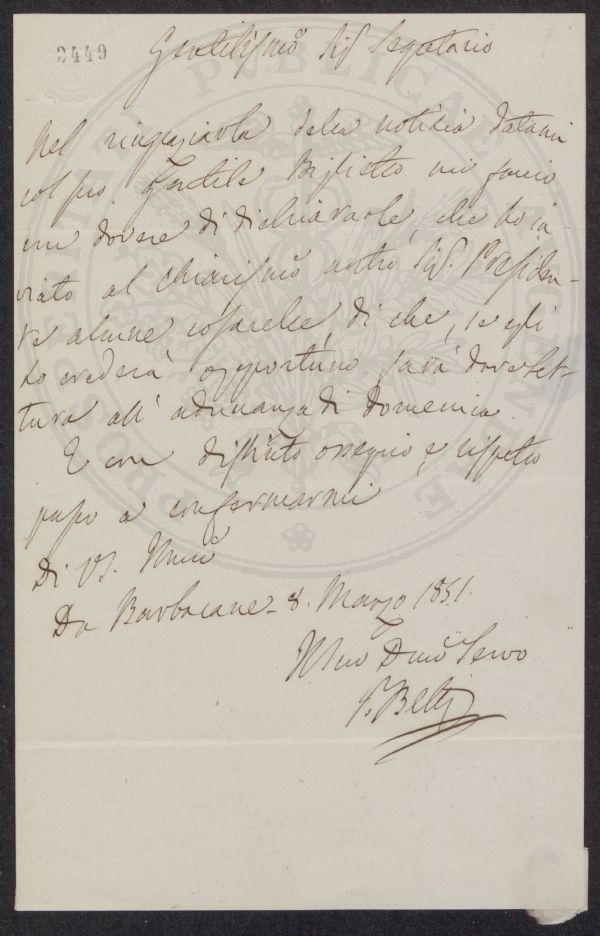 2449
Gentilissmo Sig Segretario
Nel ringraziarla della notizia datami
col suo gentile Biglietto mi faccio
un dovere di dichiararle, che ho in-
viato al chiarissmo nostro Sig. Presiden-
te alcune coserelle, di che, se egli
lo crederà opportuno sarà dare let-
tura all' adunanza di Domenica
E con distinto ossequio, e rispetto
passo a confermarmi
Di VS. Illma
Da Barbacane - 8. Marzo 1851.
Dmo Servo
Betti